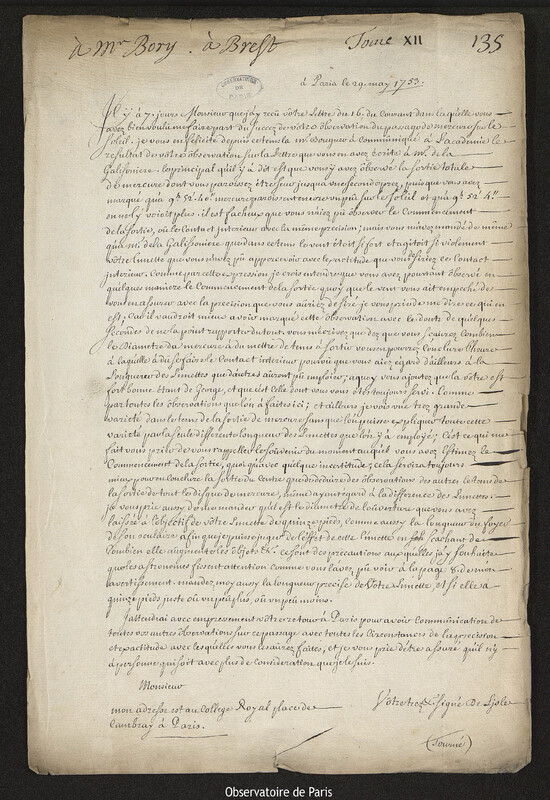 à Mr Bory. à Brest Tome XII 135
OBSERVATOIRE DE PARIS
à Paris le 29. may 1753.
Il y a 7. jours Monsieur que j'ay recu votre Lettre du 16. du Courant dans laquelle vous
avez bien voulu me faire part du succez de votre observation du passage de mercure sur le
Soleil. je vous en felicite depuis ce tems la mr. Bouguer à Communiqué à L'academie le
resultat de votre observation sur la Lettre que vous en avez ecrite à mr. de la
Galissoniere. le principal qu'il y a dit est que vous y avez observé la sortie totale
de mercure dont vous paroissez être seur jusqu'a une seconde prez, puisque vous avez
marqué qu'a 9h. 52'. 40". mercure paroissoit encore un peu sur le Soleil et qu'a 9h. 52'. 4"
on ne l'y voioit plus. il est facheux que vous n'aiez pû observer le Commencement
de la sortie, où le Contact interieur avec la même precision; mais vous n'avez mandé de même
qu'a mr. de la Galissoniere que dans ce tems le vent étoit si fort et agitoit si violement
votre Lunette que vous n'avez pû appercevoir avec l'exactitude que vous desiriez ce Contact
interieur. Comme par cette expression je crois entendre que vous avez pourtant observé en
quelque maniere le Commencement de la sortie quoy que le vent vous ait empeché de
vous en assurer avec la precision que vous auriez desiré je vous prie de me dire ce qui en
est; Car il vaudroit mieux avoir marqué cette observation avec le doute de quelques
secondes de ne la point rapporter du tout. vous m'ecrivez que dez que vous scaurez Combien
le diametre de mercure à dû mettre de tems à sortir vous en pourrez Conclure l'heure
à laquelle à dû se faire le Contact interieur pourvû que vous aiez egard d'ailleurs à la
Longueur des Lunettes que d'autres auront pû emploier; a quoy vous ajoutez que la votre est
fort bonne étant de George, et que c'est Celle dont vous vous êtes toujours servi. Comme
par toutes les observations que l'on à faites ici; et ailleurs je vois une trez grande
varieté dans le tems de la sortie de mercure sans que l'on puisse expliquer toute cette
varieté par la seule differente longueur des Lunettes que l'on y a employé; C'est ce qui me
fait vous prier de vous rappeller le souvenir du moment auquel vous avez Estimez le
Commencement de la sortie, quoi qu'avec quelque incertitude; cela servira toujours
à moy pour en Conclure la sortie du Centre que de deduire des observations des autres le tems de
la sortie de tout le disque de mercure, même ayant egard à la difference des Lunettes.
je vous prie aussy de me mander quel est le diametre de l'ouverture que vous avez
laissée à l'objectif de votre Lunette de quinze pieds, Comme aussy la Longueur du foyer
de son oculaire afin que je puisse juger de l'effet de cette Lunette en sachant de
Combien elle augmente les objets &c. ce sont des precautions aux quelles j'ay souhaité
que les astronomes fissent attention comme vous l'avez pû voir à la page 8. de mon
avertissement. mandez moy aussy la longueur precise de Votre Lunette, et si elle a
quinze pieds juste où un peu plus, où un peu moins.
J'attendrai avec empressement votre retour à Paris pour avoir Communication de
toutes vos autres observations sur ce passage avec toutes les Circonstances de la precision
et exactitude avec lesquelles vous les aurez faites, et je vous prie d'etre assuré qu'il n'y
à personne qui soit avec plus de consideration que je le suis.
Monsieur
mon adresse est au College Royal place de
Cambray à Paris.
Votre trez &c. signé De L'isle
(Tourné)
Observatoire de Paris